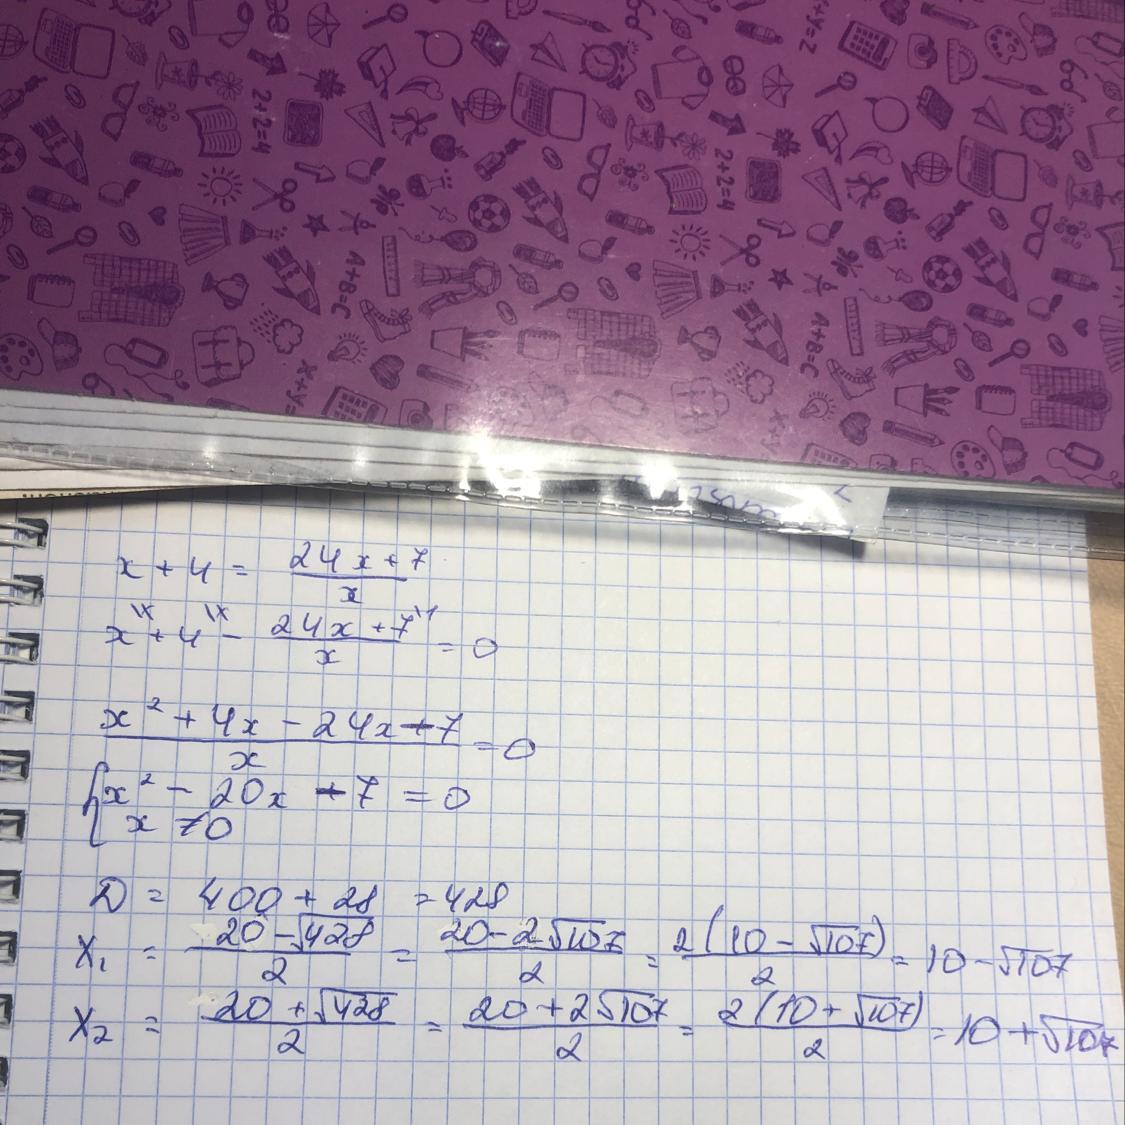 2+2=4
2+2=4
x+y=z
A+B=C
A+B=C
x+y=
x + 4 = \frac{24x+7}{x}
x^{\x} + 4^{\x} - \frac{24x+7^{\1}}{x} = 0
\frac{x^2 + 4x - 24x - 7}{x} = 0
{ x^2 - 20x - 7 = 0
x ≠ 0
D = 400 + 28 = 428
X_1 = \frac{20 - \sqrt{428}}{2} = \frac{20 - 2\sqrt{107}}{2} = \frac{2(10 - \sqrt{107})}{2} = 10 - \sqrt{107}
X_2 = \frac{20 + \sqrt{428}}{2} = \frac{20 + 2\sqrt{107}}{2} = \frac{2(10 + \sqrt{107})}{2} = 10 + \sqrt{107}